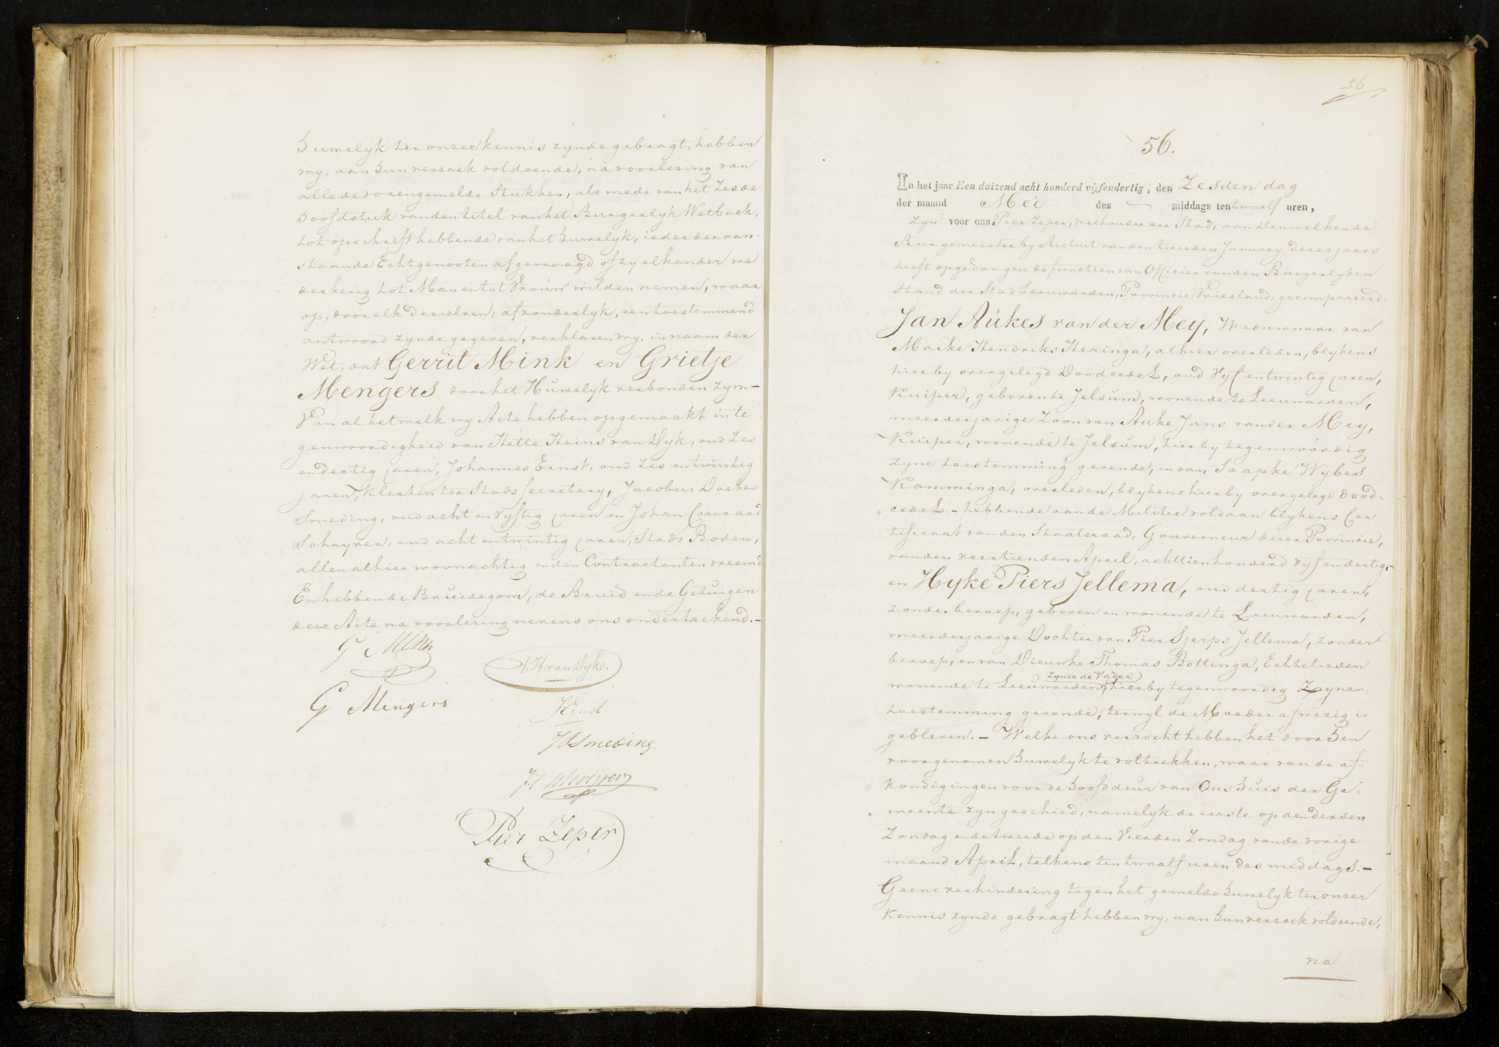 huwelyk ter onser kennis zynde gebragt, hebben
wy, aan hun versoek voldoende, na voorlesing van
alle de voorengemelde Stukken, als mede van het Zesde
hoofdstuk van den titel van het Burgerlyk Wetboek,
tot opschrift hebbende van het huwelyk, ieder der aan-
staande Echtgenooten afgevraagd of zy elkander
tot Man en tot Vrouw wilden nemen, waar
op, door elk derselven, afzonderlyk, een toestemmend
antwoord zynde gegeven, verklaren wy, in naam der
Wet, dat Gerrit Mink en Grietje
Mengers door het Huwelyk verbonden zyn.—
Van al het welk wy Acte hebben opgemaakt in te
genwoordigheid van Jelle Heins van Dyk, oud Zes
en dertig jaren, Johannes Ernst, oud Zes en twintig
jaren, Klerken ter Stads Secretary, Jacobus Douwes
Smeding, oud acht en vyftig jaren en Johan Coenraad
Schayver, oud acht en twintig jaren, Stads Boden,
allen alhier woonachtig en den Contractanten vreemd
En hebben de Bruidegom, de Bruid en de Getuigen
dese Acte na voorlesing nevens ons onderteekend.—
G Mink
van Dyk
G Mengers
Ernst
JD Smeding
Pier Zeper
56
56.
In het jaar Een duizend acht honderd vijfendertig, den Zesden dag
der maand Mei des — middags ten twaalf uren,
zyn voor ons Pier Zeper, Wethouder der Stad, van denwelken de
Burgemeester by Besluit van den tweeden January dezes jaars
heeft opgedragen de functien van Officier van den Burgerlyken
Stand der Stad Leeuwarden, Provincie Vriesland, gecompareerd
Jan Aukes van der Mey, Weduwnaar van
Maike Hendriks Heringa, alhier overleden, blykens
hierby overgelegd Doodcedel, oud Vyf en twintig jaren,
Kuiper, geboren te Jelsum, wonende te Leeuwarden,
meerderjarige Zoon van Auke Jans van der Mey,
Kuiper, wonende te Jelsum, hierby tegenwoordig
zyne toestemming gevende, en van Taapke Wybes
Kamminga, overleden, blykens hierby overgelegd Dood-
cedel — hebbende aan de Militie voldaan blykens Cer
tificaat van den Staatsraad, Gouverneur dezer Provincie,
van den veertienden April, achttienhonderd vyf en dertig
en Hyke Piers Jellema, oud dertig jaren,
zonder beroep, geboren en wonende te Leeuwarden,
meerderjarige Dochter van Pier Sjerps Jellema, zonder
beroep, en van Dieuwke Thomas Bottinga, Echtelieden
zynde de Vader
wonende te Leeuwarden, hierby tegenwoordig Zyne
toestemming gevende, terwyl de Moeder afwezig is
gebleven.— Welke ons verzocht hebben het door hen
voorgenomen huwelyk te voltrekken, waar van de af-
kondigingen voor de hoofddeur van Ons huis der Ge-
meente zyn geschied, namelyk de eerste op den derden
Zondag en de tweede op den Vierden Zondag van de vorige
maand April, telkens ten twaalf uren des middags.—
Geene verhindering tegen het gemelde huwelyk ter onser
kennis zynde gebragt hebben wy, aan hun versoek voldoende,
na